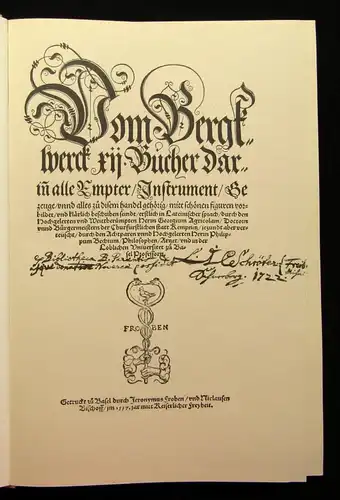 Vom Bergk-
werck xij Bücher dar-
iñ alle Empter / Instrument / Ge
zeuge / vnnd alles zu disem handel gehörig / mitt schönen figuren vor-
bildet / vnd klärlich beschriben seindt / erstlich in Lateinischer sprach / durch den
Hochgelerten vnd Weittberümpten Herrn Georgium Agricolam / Doctorn
vnnd Bürgermeistern der Churfürstlichen statt Kempnitz / jezundt aber ver-
teüscht / durch den Achtparen vnnd Hochgelerten Herrn Philip-
pum Bechium, Philosophen / Artzet / vnd in der
Loblichen Vniuersitet zů Ba-
sel Professorn.
Bibliotheca B.
1722
FRO BEN
Getruckt zů Basel durch Jeronymus Froben / vnd Niclausen
Bischoff / im 1557. jar mitt Keiserlicher Freyheit.